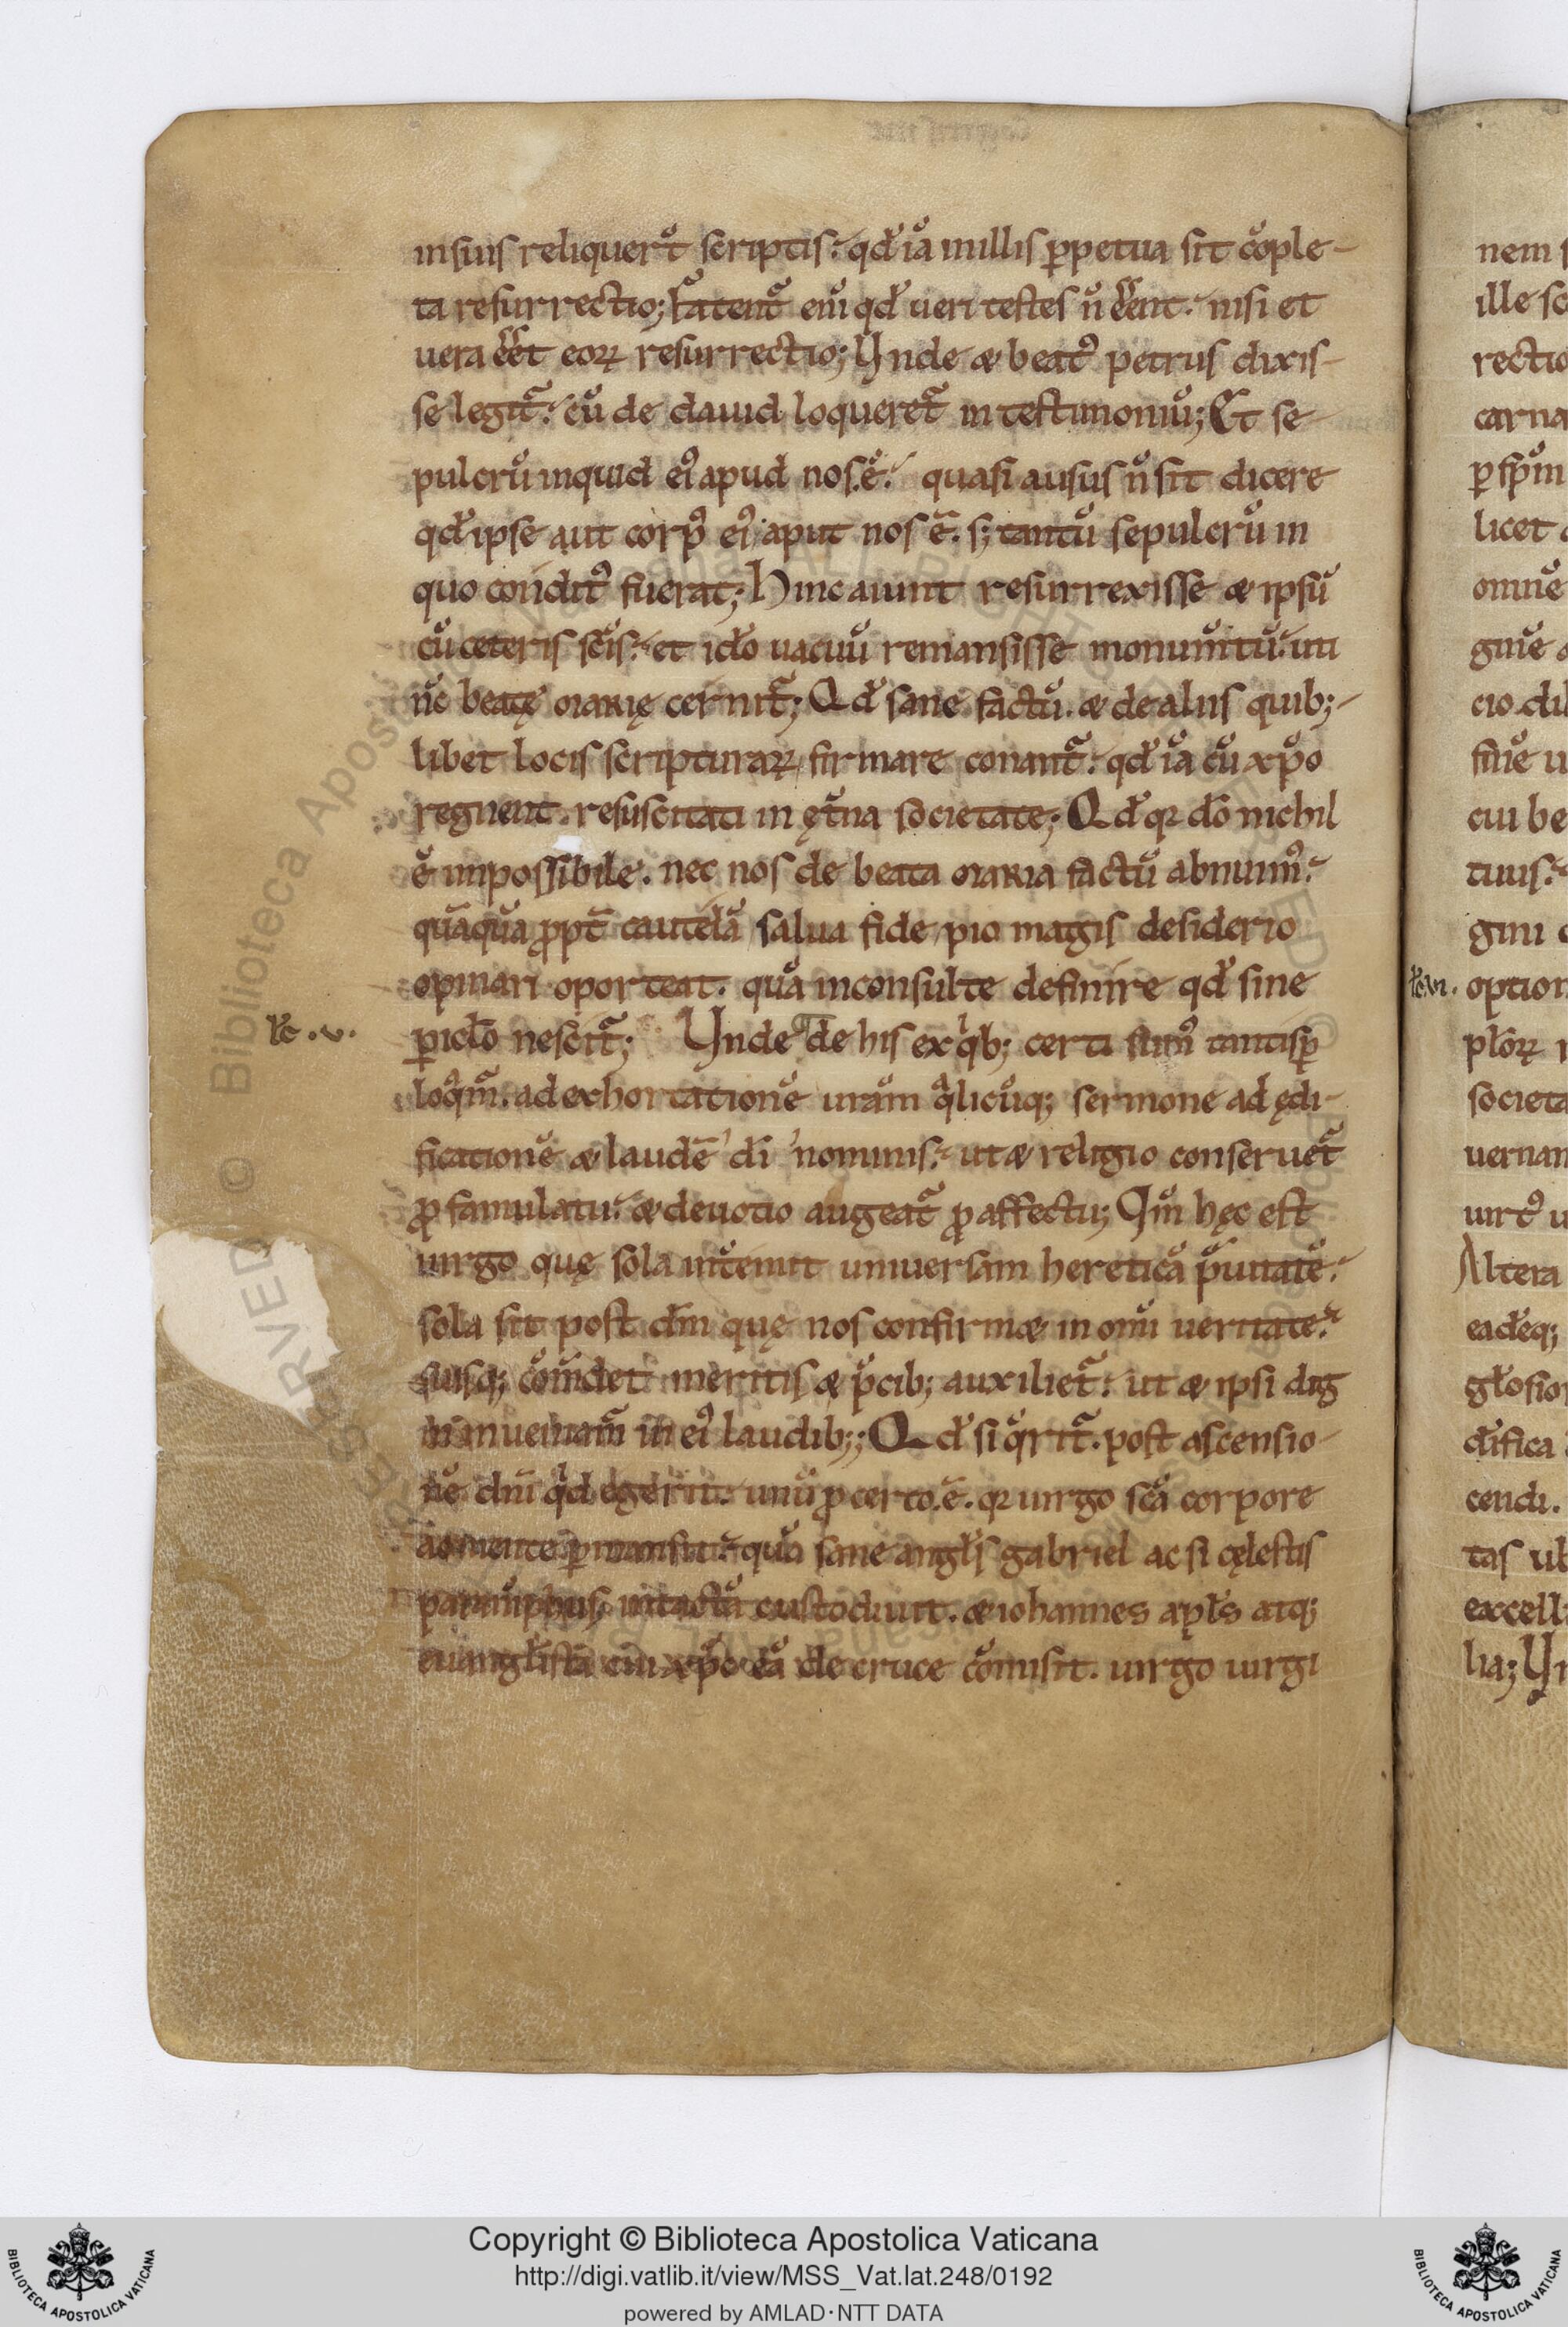 insuis reliquer̄t scriptis. qd̄ iā in illis ꝑpetua sit cōple-
ta resurrectio; Fatent̄ eni qd̄ ueri testes n̄ eēnt. nisi et
uera eēt eoꝝ resurrectio; Unde & beatꝰ petrus dixis-
se legit̄. cū de dauid loqueret̄ in testimoniū; Et se-
pulcrū inquid eiꝰ apud nos ē. quasi ausus n̄ sit dicere
qd̄ ipse aut corpꝰ eiꝰ aput nos ē. s; tantū sepulcrū in
quo conditꝰ fuerat; Hinc aiunt resurrexisse & ipsū
cū ceteris sc̄is. et id̄o uacuū remansisse monum̄tū. uti
n̄c beatę marię cernit̄; Qd̄ sane factū. & de aliis quib;-
libet locis scripturaꝝ firmare conant̄. qd̄ iā cū xp̄o
regnent. resuscitati in ęt̄na societate; Qd̄ qꝛ dō nichil
ē impossibile. nec nos de beata maria factū abnuimꝰ.
quāquā ꝓpt̄ cautelā salua fide, pio magis desiderio
opinari oporteat. quā inconsulte definire qd̄ sine
lc̄ .v.
ꝑiclō nescit̄; Unde de his ex qͥb; certi sumꝰ tantisꝑ
loqͣm̄. ad exhortationē urām qͣlicūq; sermone ad ędi-
ficationē & laudē dī nominis. ut & religio conseruet̄
ꝓ famulatu. & deuotio augeat̄ ꝓ affectu; Qm̄ hęc est
uirgo quę sola int̄emit uniuersam heretica p̄uitatē.
sola sit post dm̄ quę nos confirm& in om̄i ueritate.
suisq; cōmdet meritis & p̄cib; auxiliet̄. ut & ipsi dig
ni inueniam̄ in eiꝰ laudib;; Qd̄ si qͣrit̄. post ascensio-
nē dn̄i qͥd egerit. unū ꝓ certo ē. qꝛ uirgo scā corpore
ac mente ꝑmansit. quā sane angl̄s gabriel ac si cęlestis
paranīphus, intactā custodiuit. & iohannes apl̄s atq;
euangl̄ista cui xp̄c eā de cruce cōmisit. uirgo uirgi
nem
ille
rectio
carna
ꝑ sp̄m
licet
omnē
cui be
tuis.
gini
lc̄ .vi.
societa
uirtꝰ
Altera
eadēq;
cendi.
lia;
BIBLIOTECA APOSTOLICA VATICANA
Copyright © Biblioteca Apostolica Vaticana
http://digi.vatlib.it/view/MSS_Vat.lat.248/0192
powered by AMLAD·NTT DATA
BIBLIOTECA APOSTOLICA VATICANA